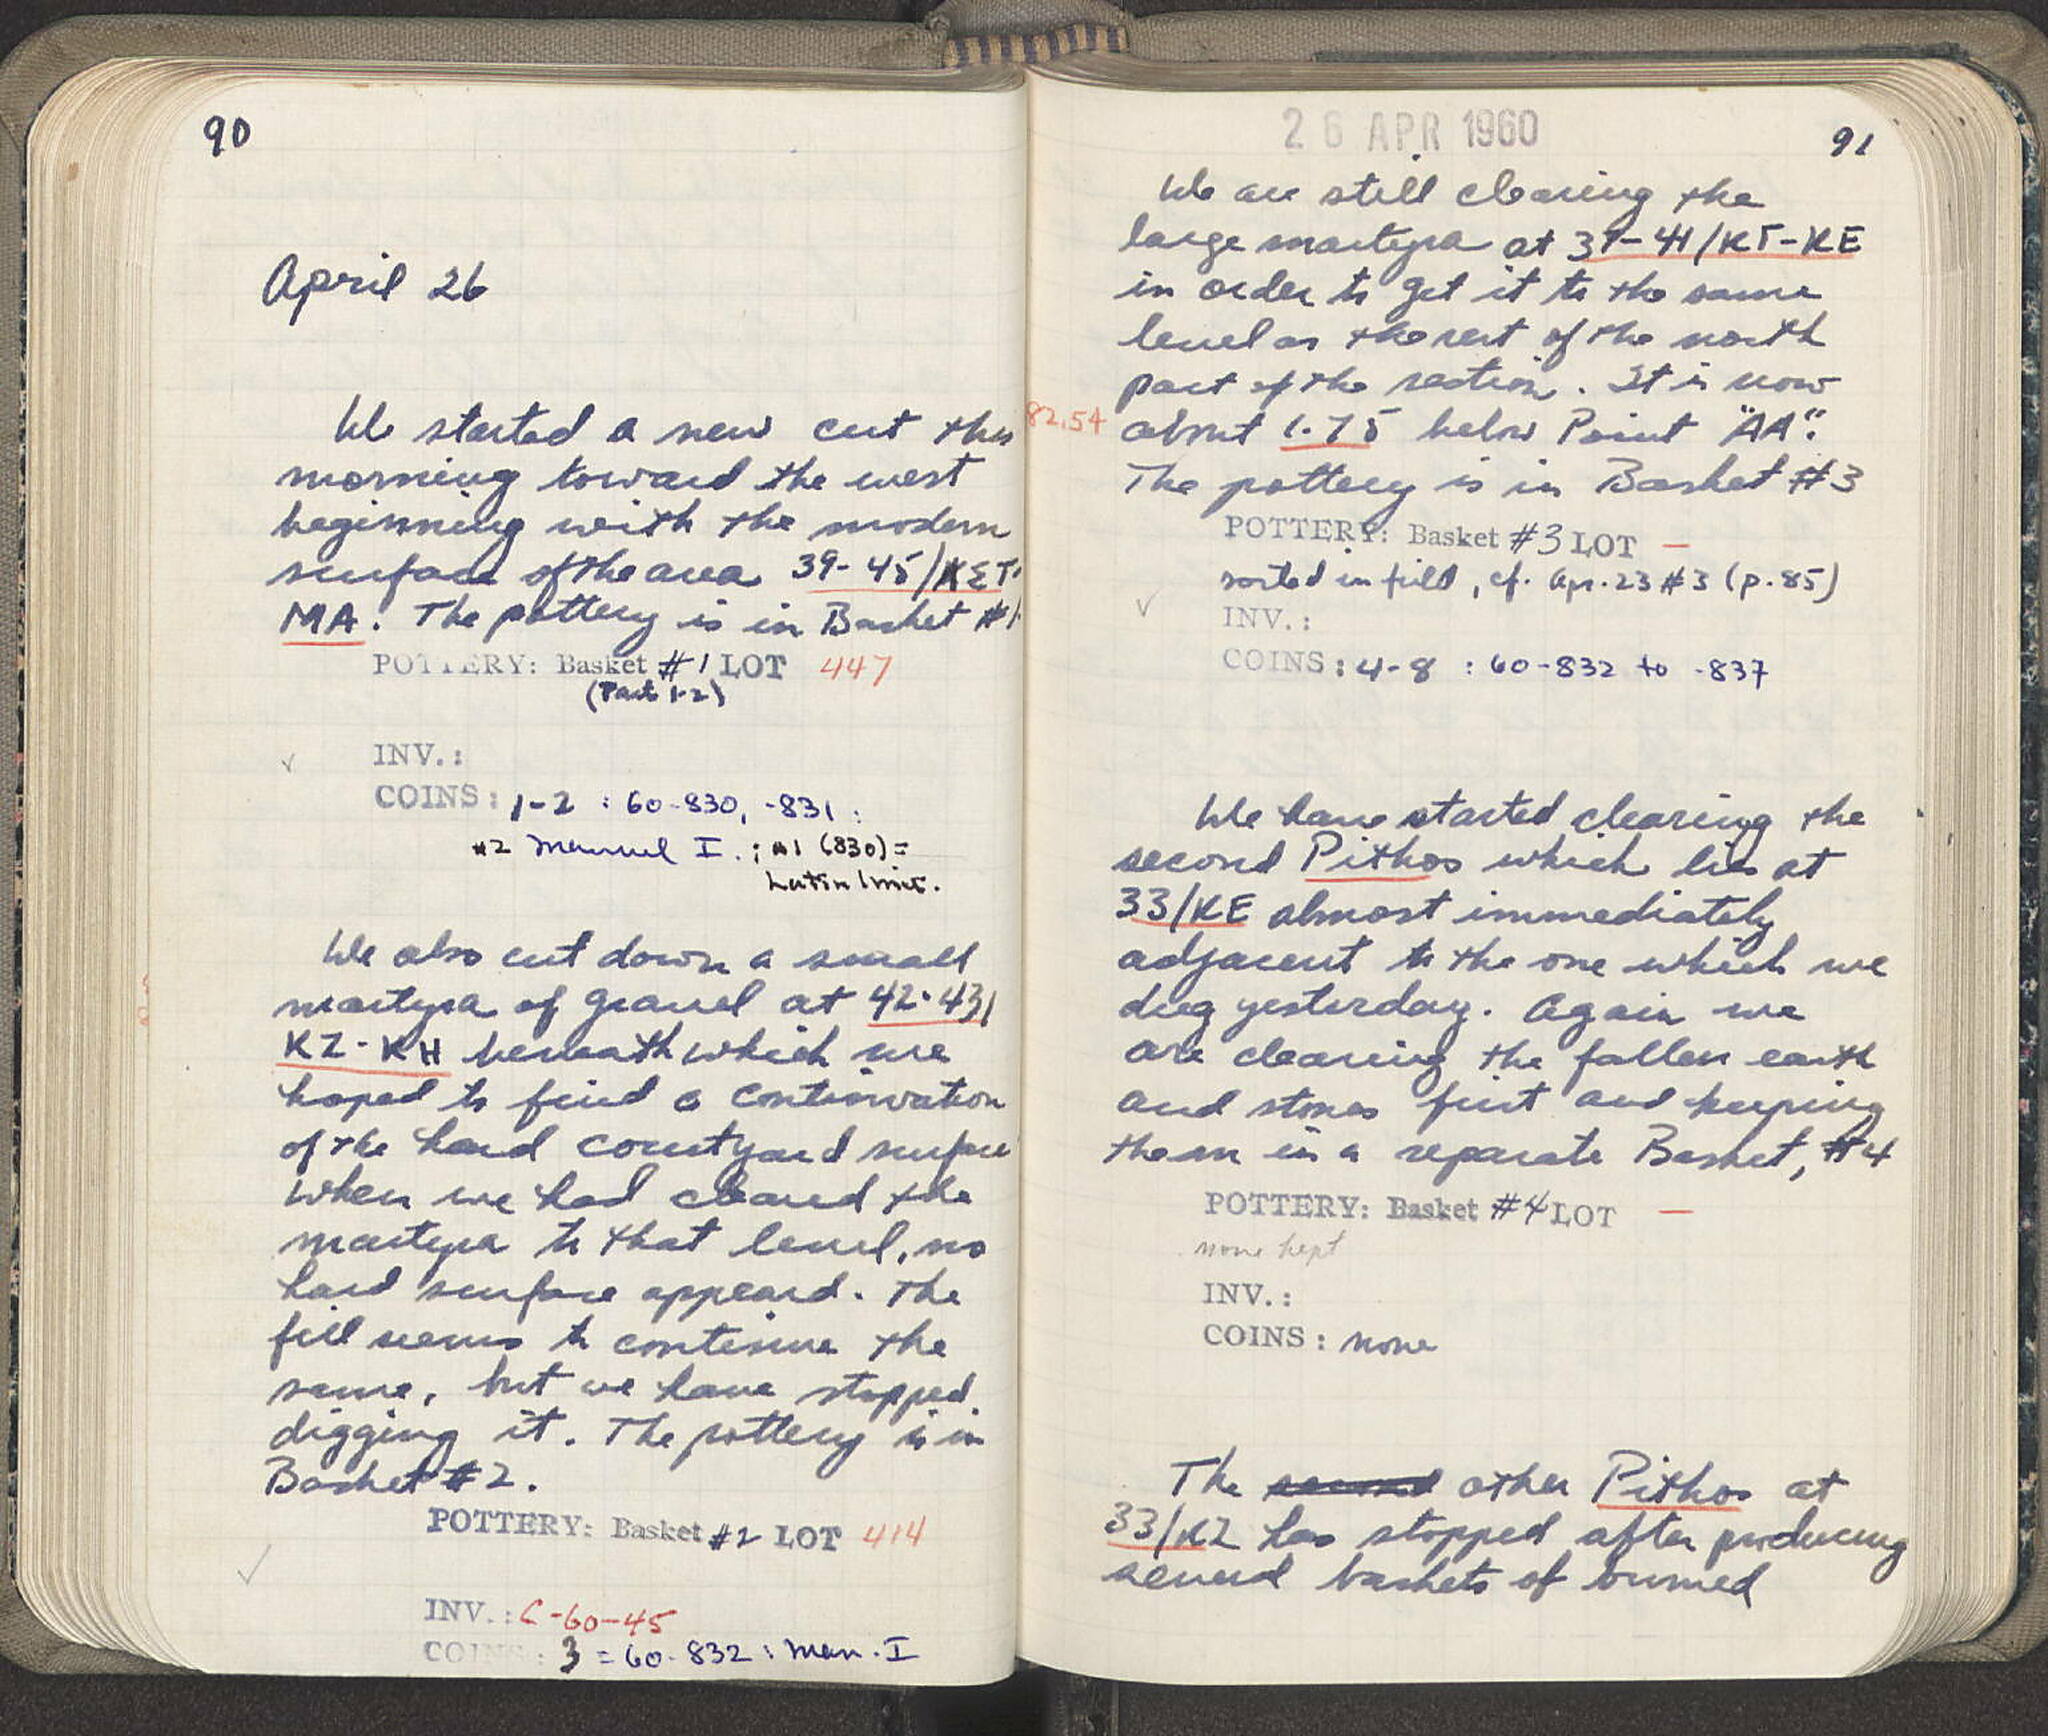 90
April 26
We started a new cut this
morning toward the west
beginning with the modern
surface of the area 39-45/KΣT-
MA. The pottery is in Basket #1.
POTTERY: Basket #1 LOT 447
(Part 1-2)
INV.:
COINS: 1-2 : 60-830, -831 :
#2 Manuel I. ; #1 (830) =
Latin Imit.
We also cut down a small
martyra of gravel at 42-43/
KZ-KH beneath which we
hoped to find a continuation
of the hard courtyard surface
when we had cleared the
martyra to that level, no
hard surface appeard. The
fill seems to continue the
same, but we have stopped
digging it. The pottery is in
Basket #2.
POTTERY: Basket #2 LOT 414
INV.: C-60-45
COINS: 3 = 60-832 : Man. I
26 APR 1960
91
We are still clearing the
large martyra at 37-41/KT-KE
in order to get it to the same
level as the rest of the north
part of the section. It is now
82.54 about 1.75 below Point "AA".
The pottery is in Basket #3
POTTERY: Basket #3 LOT —
sorted in field, cf. Apr. 23 #3 (p. 85)
INV.:
COINS: 4-8 : 60-832 to -837
We have started clearing the
second Pithos which lies at
33/KE almost immediately
adjacent to the one which we
dug yesterday. Again we
are clearing the fallen earth
and stones first and keeping
them in a separate Basket, #4
POTTERY: Basket #4 LOT —
none kept
INV.:
COINS: none
The second other Pithos at
33/KZ has stopped after producing
several baskets of burned